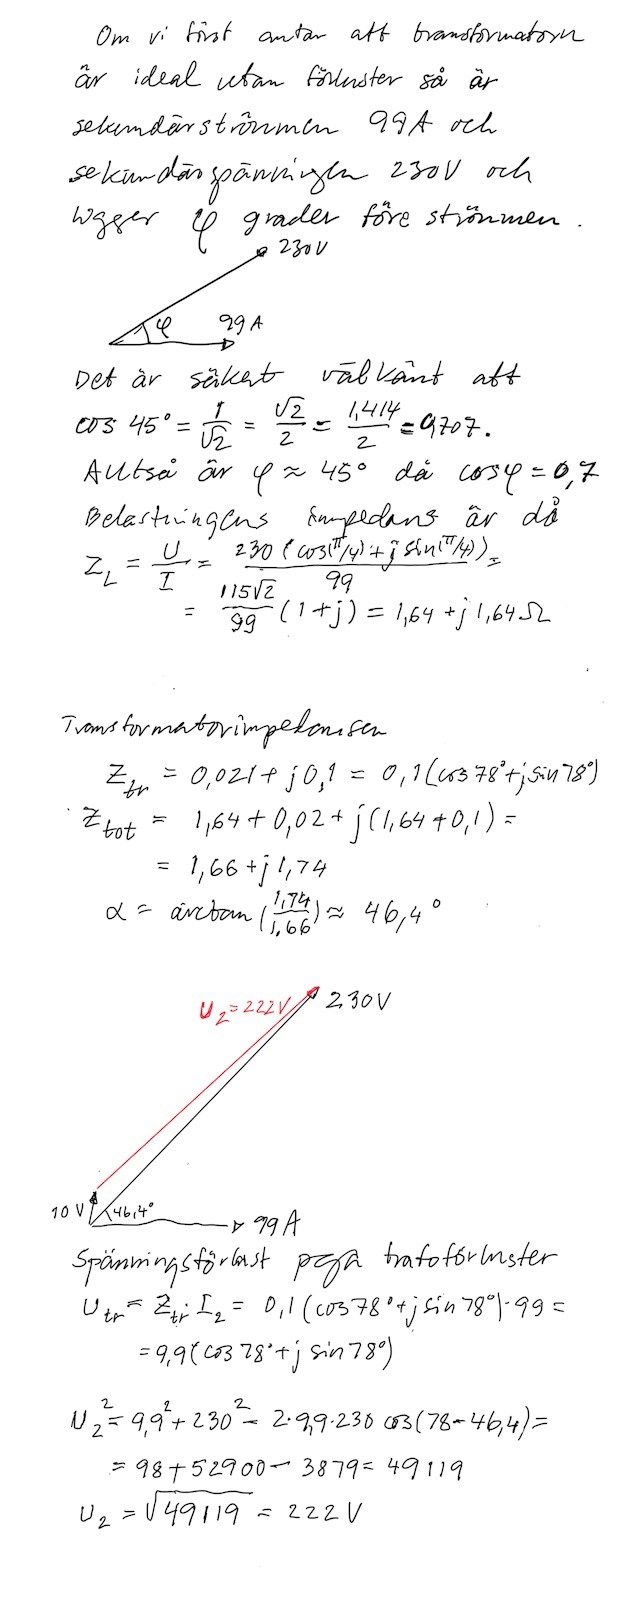 Om vi först antar att transformatorn
är ideal utan förluster så är
sekundärströmmen 99A och
sekundärspänningen 230V och
ligger φ grader före strömmen.
230V
φ 99A
Det är säkert välkänt att
cos 45° = 1/√2 = √2/2 = 1,414/2 = 0,707.
Alltså är φ ≈ 45° då cosφ = 0,7
Belastningens impedans är då
Z_L = U/I = 230(cos(π/4)+j sin(π/4))/99 =
= 115√2/99 (1+j) = 1,64 + j1,64Ω
Transformatorimpedansen
Z_tr = 0,021 + j0,1 = 0,1(cos78°+j sin78°)
Z_tot = 1,64 + 0,02 + j(1,64+0,1) =
= 1,66 + j1,74
α = arctan(1,74/1,66) ≈ 46,4°
U₂=222V 230V
10V 46,4° 99A
Spänningsförlust pga trafoförluster
U_tr = Z_tr · I₂ = 0,1(cos78°+j sin78°)·99 =
= 9,9(cos78°+j sin78°)
U₂² = 9,9² + 230² − 2·9,9·230 cos(78−46,4) =
= 98 + 52900 − 3879 = 49119
U₂ = √49119 = 222V